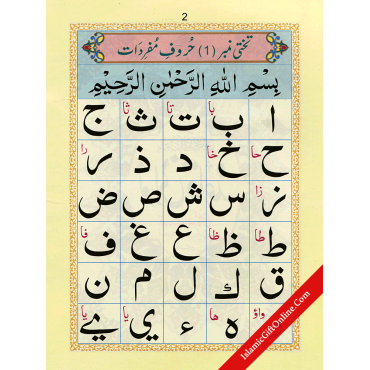 2
تختی نمبر (1) حُروفِ مُفرَدَات
بِسْمِ اللهِ الرَّحْمٰنِ الرَّحِيْمِ
ا ب با ت تا ث ثا ج
ح حا خ خا د ذ ر را
ز زا س ش ص ض
ط طا ظ ظا ع غ ف فا
ق ك ل م ن
و واؤ ه ها ء ي يا ے يا
IslamicGiftOnline.Com